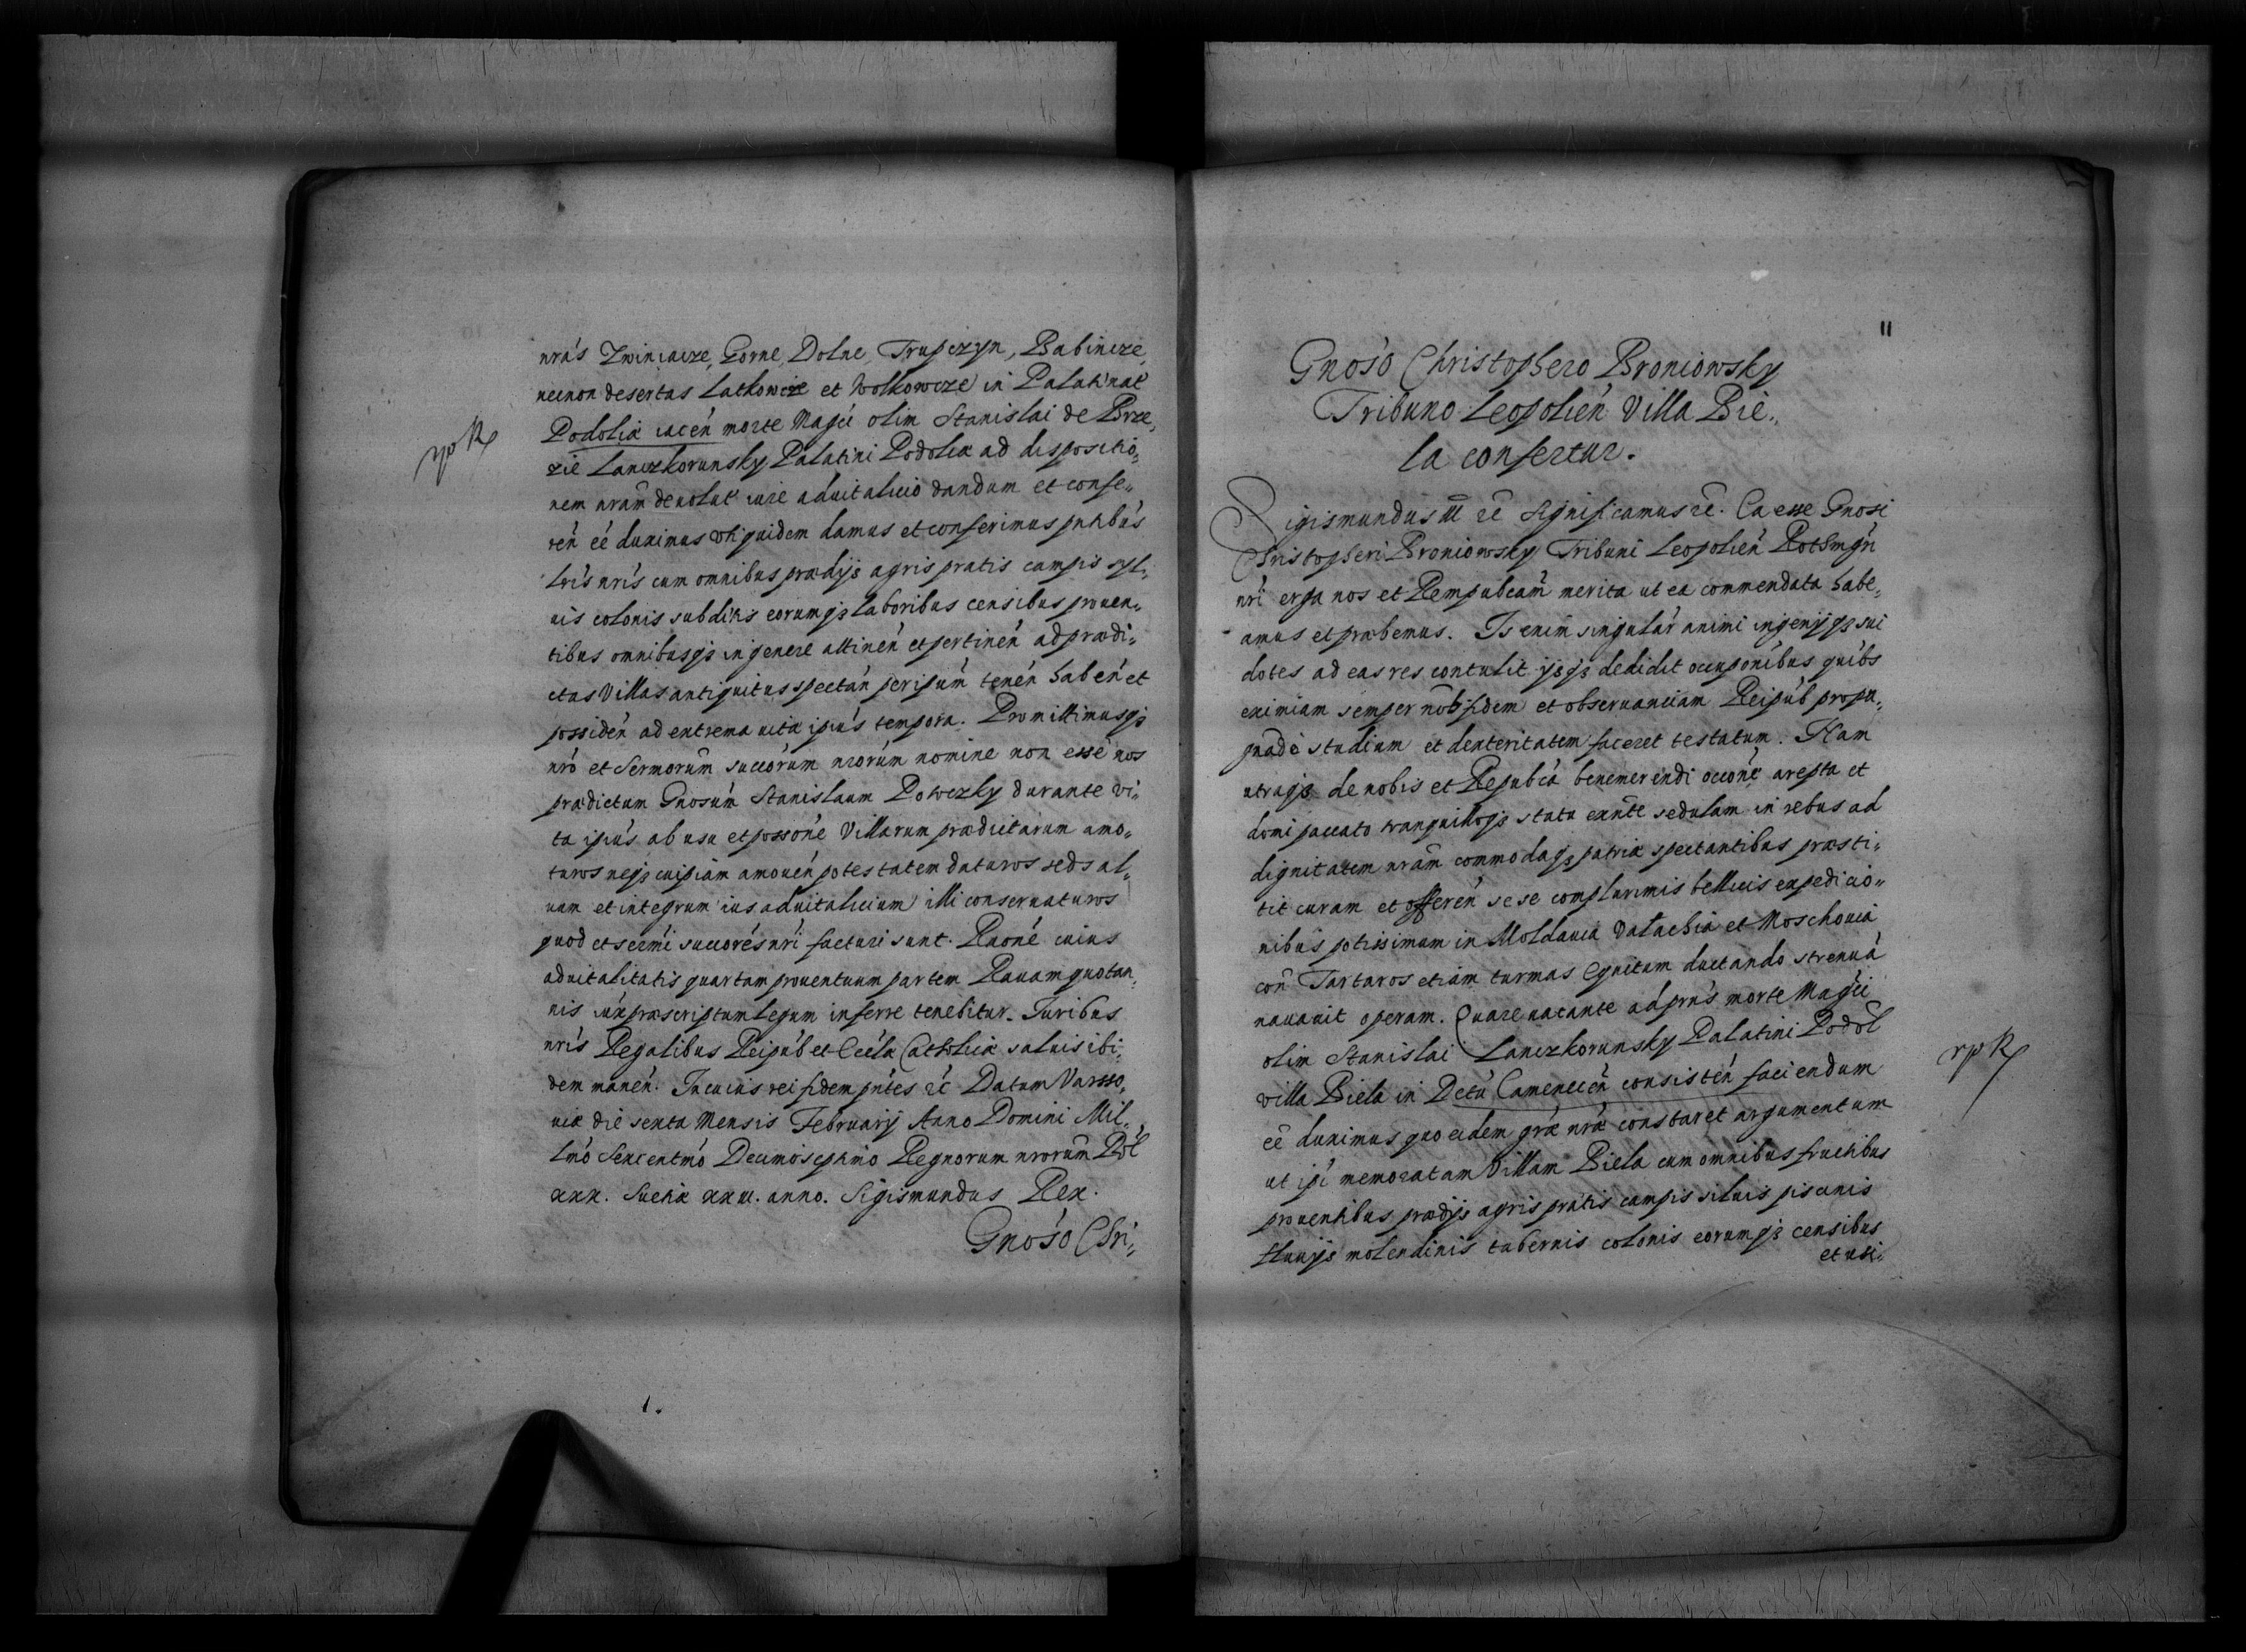 nrás Zwiniacze, Gorne, Dolne, Trupczyn, Babincze,
necnon desertas Latkowcze et Wolkowcze in Palatinat
Podoliæ iacen̄ morte Magci olim Stanislai de Brze,,
zie Lanczkorunsky Palatini Podoliæ ad dispositio,,
nem nram̄ deuolut iure aduitalicio dandum et confe,,
ren̄ eē duximus vti quidem damus et conferimus pntibus
lrīs nrīs cum omnibus prædijs agris pratis campis syl,,
uis colonis subditis eorumq3 laboribus censibus prouen,,
tibus omnibusq3 in genere attinen̄ et pertinen̄ ad prædi,,
ctas Villas antiquitus spectan̄ per ipsum̄ tenen̄ haben̄ et
possiden̄ ad extrema uitæ ipsius tempora. Promittimusq3
nrō et Sermorum̄ succorum̄ nrorum̄ nomine non esse nos
prædictum Gnosum̄ Stanislaum Potwczky durante vi,,
ta ipsius ab usu et possone Villarum prædictarum amo,,
turos neq3 cuipiam amouen̄ potestatem daturos sed sal,,
uam et integrum ius aduitalicium illi conseruaturos
quod et sermi succores nri facturi sunt. Raone cuius
aduitalitatis quartam prouentuum partem Rauam quotan,,
nis iux præscriptum legum inferre tenebitur. Iuribus
nris Regalibus Reipub et Eccla Catholicæ saluis ibi,,
dem manen̄. In cuius rei fidem pntes rc Datum Varsso,,
uiæ die sexta Mensis February Anno Domini Mil,,
lmo Sexcentmo Decimoseptimo Regnorum nrorum̄ Pol
xxx. Sueciæ xxiii. anno. Sigismundus Rex.
Gnoso Chri,,
1.
11
Gnoso Christophero Broniowsky
Tribuno Leopolien̄ Villa Bie,,
la confertur.
Sigismundus III rc Significamus rc. Ea esse Gnosi
Christopheri Broniowsky Tribuni Leopolien̄ Rothmgri
nri erga nos et Rempubcam̄ merita ut ea commendata habe,,
amus et præbemus. Is enim singular animi ingenijq3 sui
dotes ad eas res contulit ijsq3 dedidit occuponibus quibs
eximiam semper nob fidem et obseruanciam Reipub propu,,
gnade studium et dexteritatem faceret testatum. Nam
utraq3 de nobis et Repubca benemerendi occone arepta et
domi paccato tranquilloq3 statu exnte sedulam in rebus ad
dignitatem nram̄ commodaq3 patriæ spectantibus præsti,,
tit curam et offeren̄ sese complurimis bellicis expedicio,,
nibus potissimum in Moldauia Valachia et Moschouia
con̄ Tartaros etiam turmas Equitum ductando strenua
nauauit operam. Quare uacante ad prns morte Magci
olim Stanislai Lanczkorunsky Palatini Podol
villa Biela in Dctu Camenecen̄ consisten̄ faciendum
eē duximus quo eidem græ nræ constaret argumentum
ut ipi memoratam Villam Biela cum omnibus fructibus
prouentibus prædijs agris pratis campis siluis piscinis
fluuijs molendinis tabernis colonis eorumq3 censibus
et uti,,